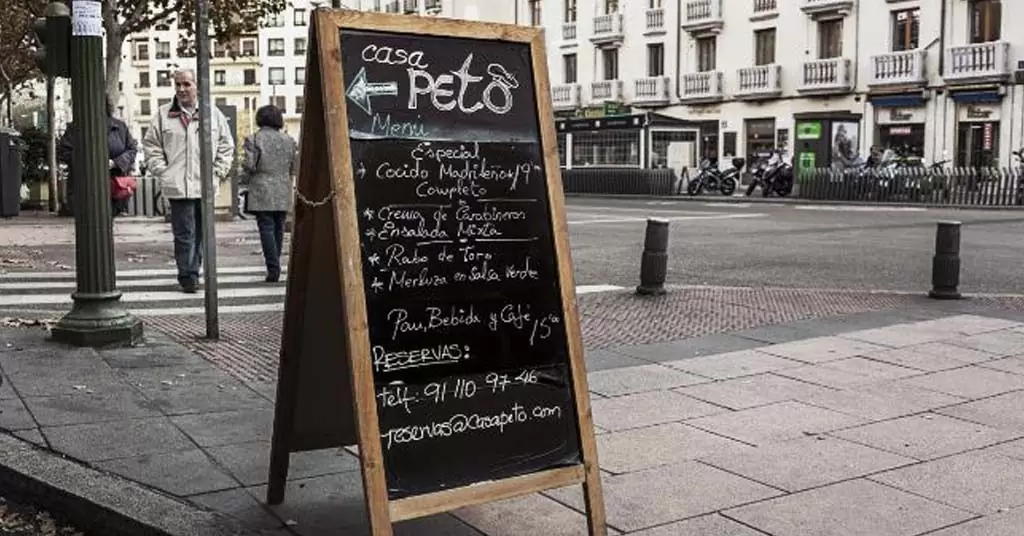 casa
PETO
Menú
Especial
* Cocido Madrileño 19
Completo
* Crema de Carabineros
* Ensalada Mixta
* Rabo de Toro
* Merluza en Salsa Verde
Pan, Bebida y Café
15
RESERVAS:
telf: 91 110 97 46
reservas@casapeto.com